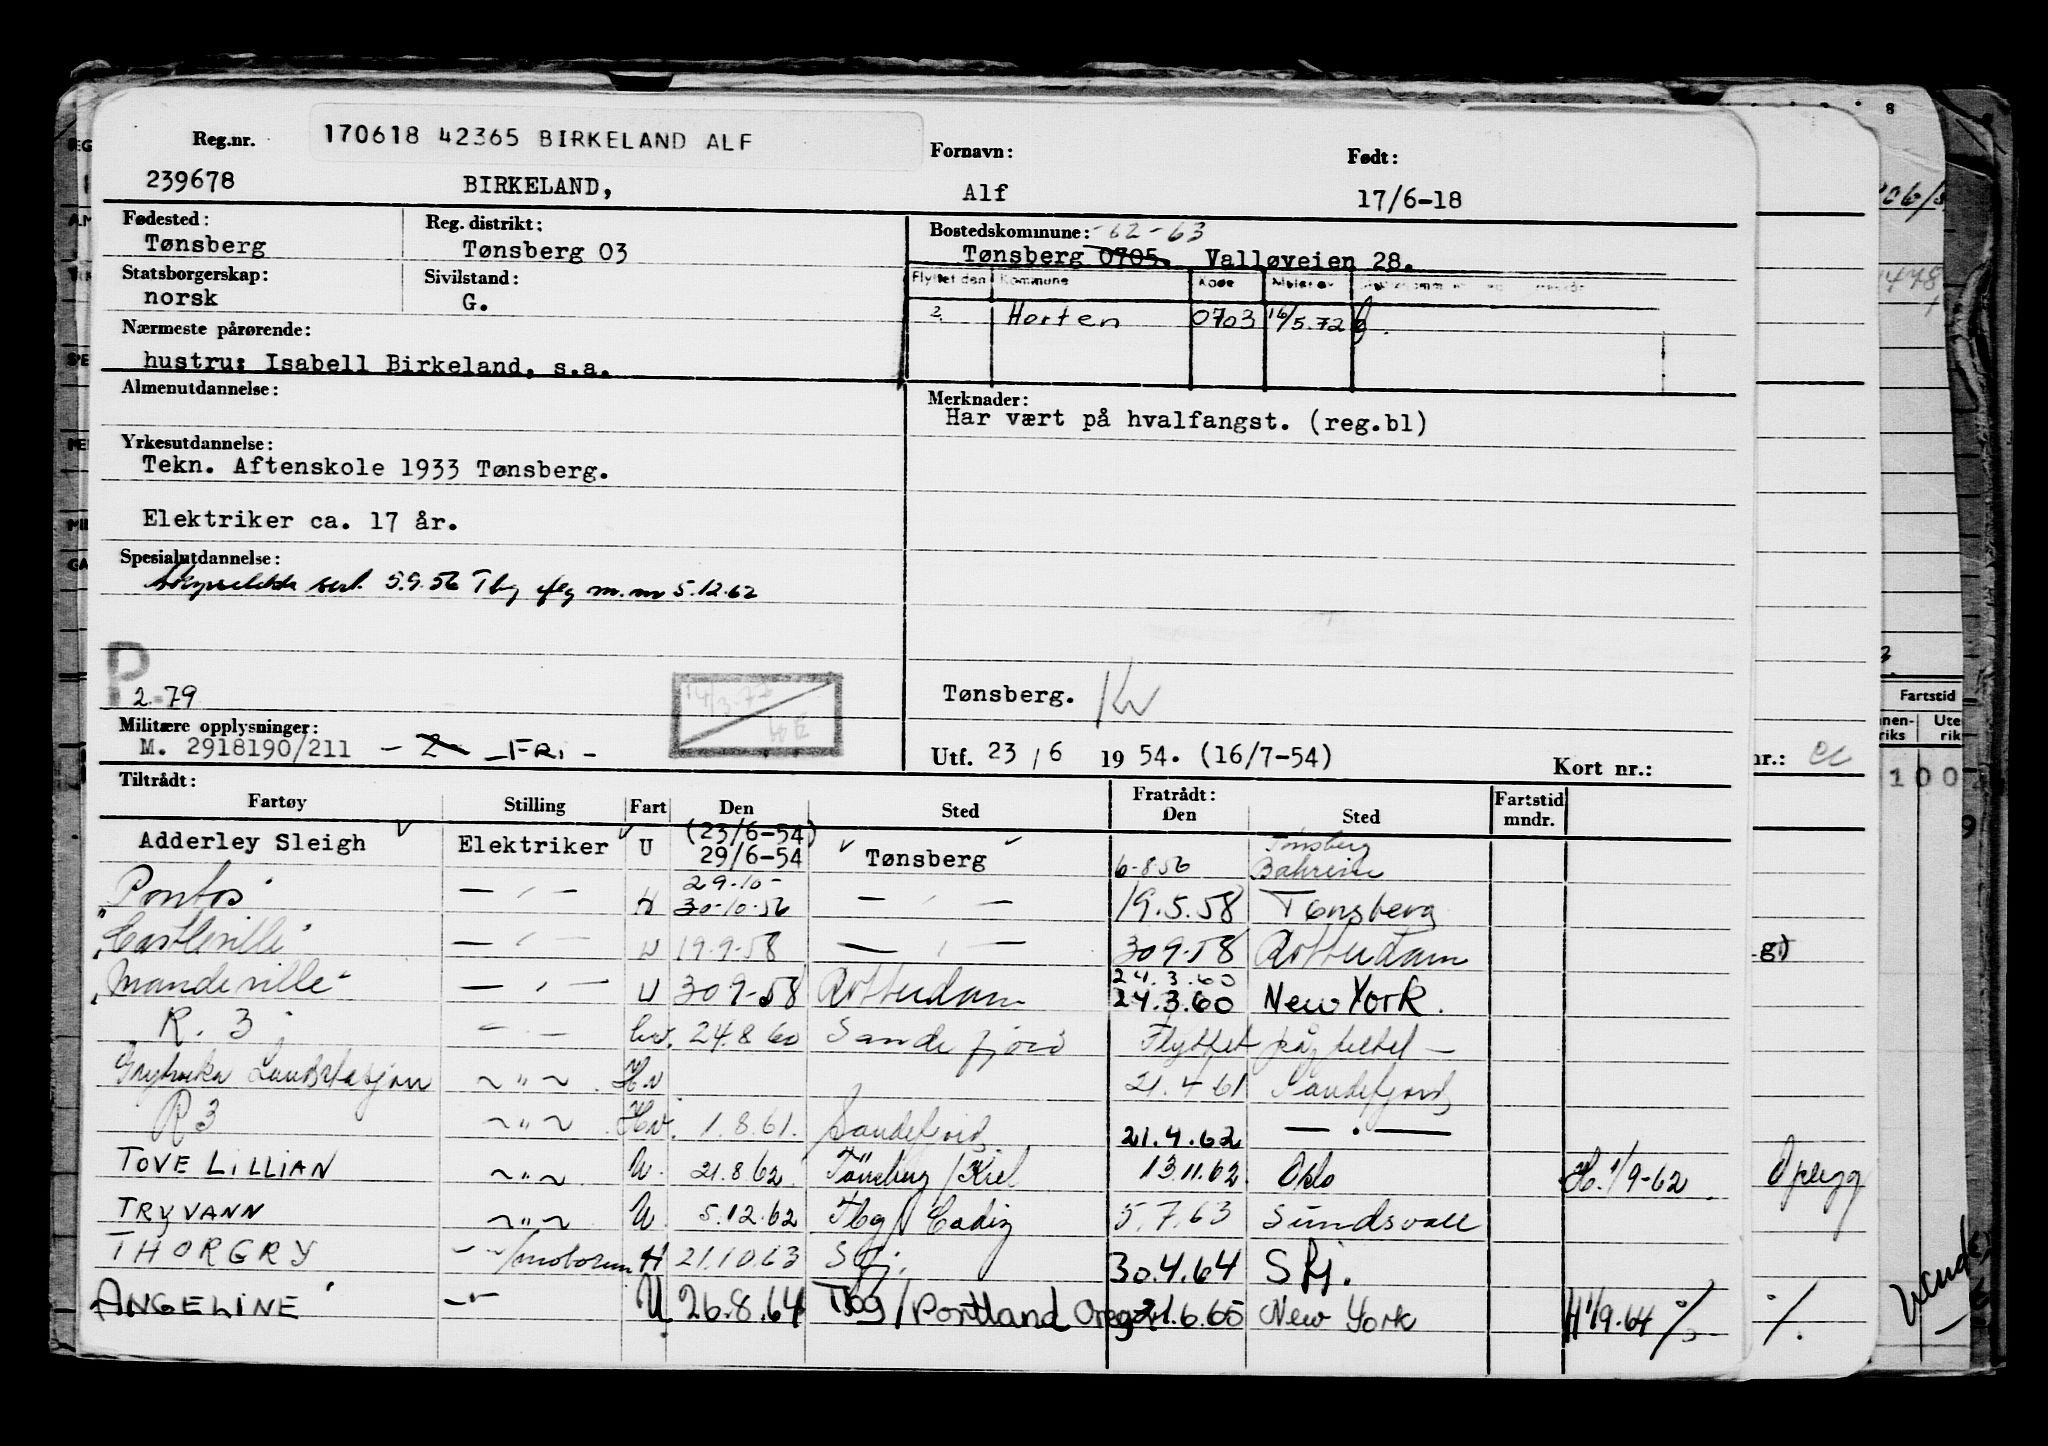 Reg.nr. 170618 42365 BIRKELAND ALF Fornavn: Født:
239678 BIRKELAND, Alf 17/6-18
Fødested: Reg. distrikt: Bostedskommune: -62-63
Tønsberg Tønsberg 03 Tønsberg 0705. Valløveien 28.
Statsborgerskap: Sivilstand: Flyttet den Kommune Kode
norsk G. Horten 0703 16/5.72
Nærmeste pårørende:
hustru: Isabell Birkeland, s.a.
Almenutdannelse: Merknader:
Har vært på hvalfangst. (reg.bl)
Yrkesutdannelse:
Tekn. Aftenskole 1933 Tønsberg.
Elektriker ca. 17 år.
Spesialutdannelse:
5.9.56 Tbg m.m 5.12.62
P
2.79 Tønsberg.
Militære opplysninger:
M. 2918190/211 - 2 - FRI - Utf. 23 / 6 1954. (16/7-54) Kort nr.:
Tiltrådt: Fratrådt:
Fartøy Stilling Fart Den Sted Den Sted Fartstid mndr.
Adderley Sleigh Elektriker U (23/6-54) 29/6-54 Tønsberg 6-8.56 Tønsberg Bahrein
Pontos — " — H 29.10- 30-10-56 — " — 19.5.58 Tønsberg
"Castleville" — " — U 19.9.58 — " — 30 9-58 Rotterdam
"Mandeville" — " — U 30 9-58 Rotterdam 24.3.60 24.3.60 New York.
R. 3 — " — hv. 24.8 60 Sandefjord Flyttet
Landstasjon ~ " ~ Hv 21.4 61 Sandefjord
R3 ~ " ~ Hv. 1.8.61. Sandefjord 21.4.62 — " —
TOVE LILLIAN ~ " ~ U. 21.8.62 Tönsberg / Kiel 13.11.62 Oslo H. 1/9-62
TRYVANN ~ " ~ U. 5.12.62 Tbg / Cadiz 5.7.63 Sundsvall
THORGRY — " — /motorm H 21.10.63 Sfj. 30.4.64 Sfj.
ANGELINE — " — U 26.8.64 Tbg / Portland Oreg. 21.6.65 New York H 1/9-64 %
Fartstid
100
%.